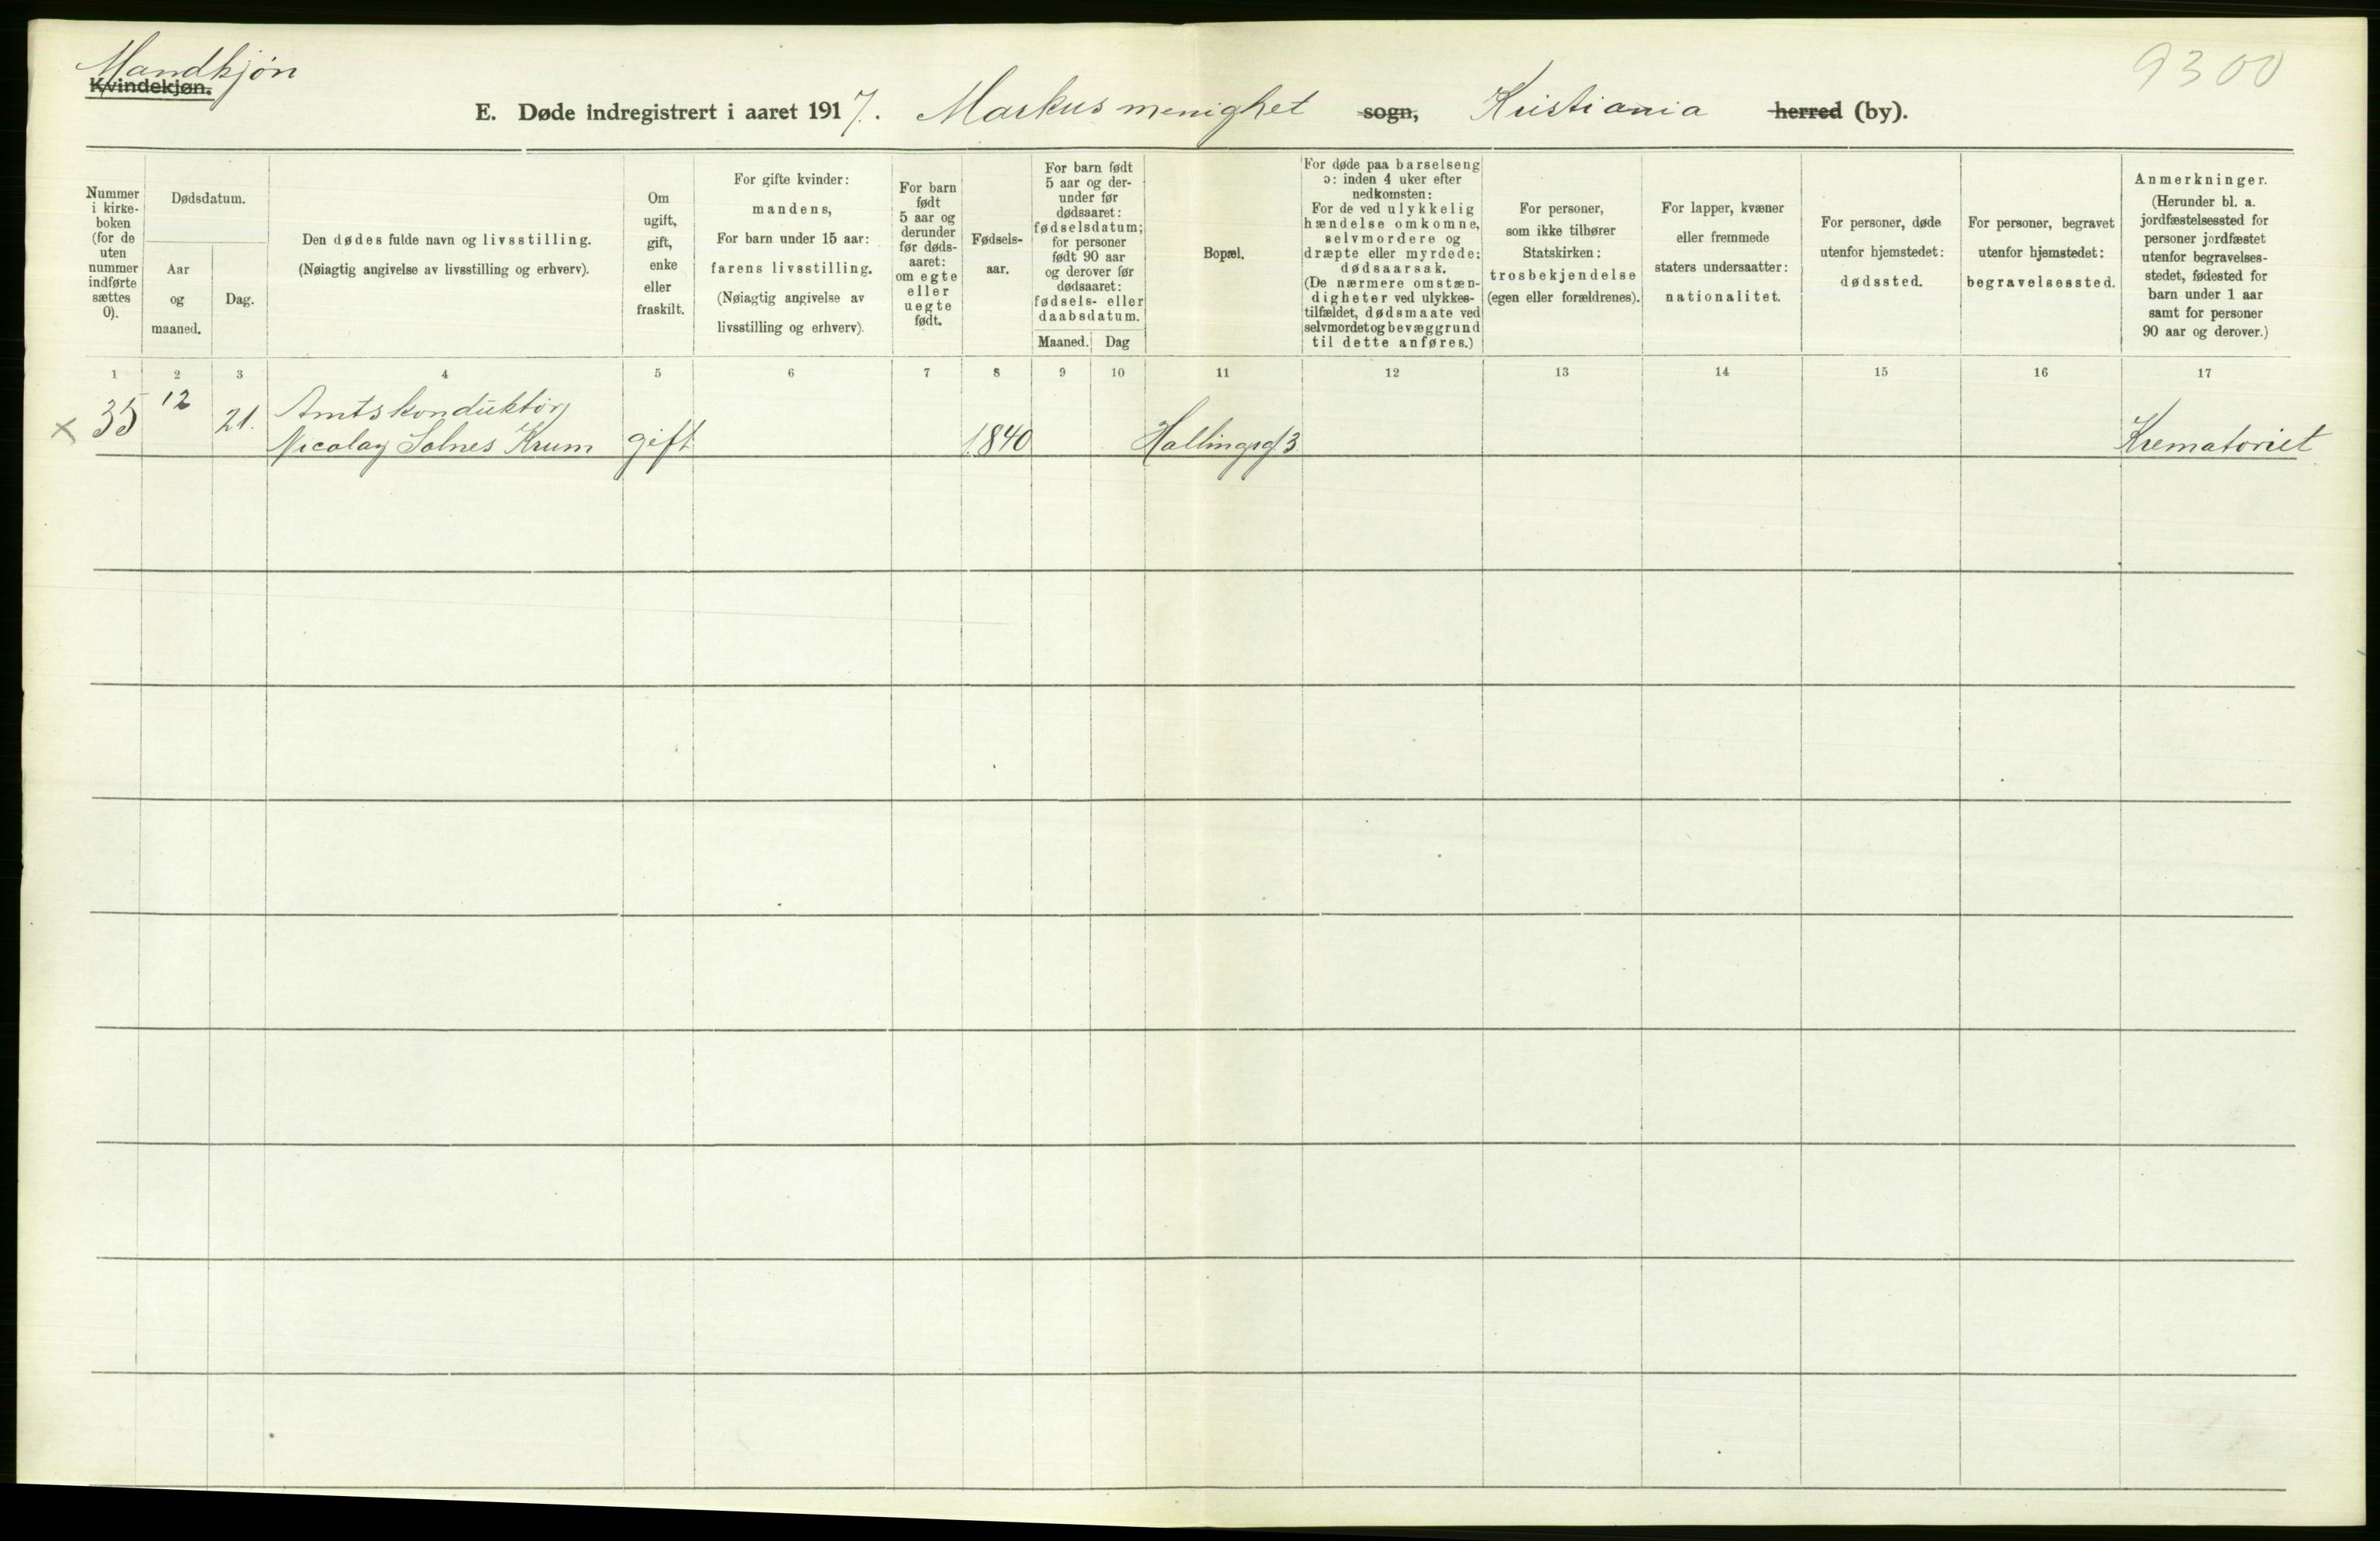 Mandkjøn
Kvindekjøn.
9300
E. Døde indregistrert i aaret 1917. Markus menighet sogn, Kristiania herred (by).
Nummer
i kirke-
boken
(for de
uten
nummer
indførte
sættes
0).
Dødsdatum.
Aar
og
maaned.
Dag.
Den dødes fulde navn og livsstilling.
(Nøiagtig angivelse av livsstilling og erhverv).
Om
ugift,
gift,
enke
eller
fraskilt.
For gifte kvinder:
mandens,
For barn under 15 aar:
farens livsstilling.
(Nøiagtig angivelse av
livsstilling og erhverv).
For barn
født
5 aar og
derunder
før døds-
aaret:
om egte
eller
uegte
født.
Fødsels-
aar.
For barn født
5 aar og der-
under før
dødsaaret:
fødselsdatum;
for personer
født 90 aar
og derover før
dødsaaret:
fødsels- eller
daabsdatum.
Maaned. Dag
Bopæl.
For døde paa barselseng
ɔ: inden 4 uker efter
nedkomsten:
For de ved ulykkelig
hændelse omkomne,
selvmordere og
dræpte eller myrdede:
dødsaarsak.
(De nærmere omstæn-
digheter ved ulykkes-
tilfældet, dødsmaate ved
selvmordet og bevæggrund
til dette anføres.)
For personer,
som ikke tilhører
Statskirken:
trosbekjendelse
(egen eller forældrenes).
For lapper, kvæner
eller fremmede
staters undersaatter:
nationalitet.
For personer, døde
utenfor hjemstedet:
dødssted.
For personer, begravet
utenfor hjemstedet:
begravelsessted.
Anmerkninger.
(Herunder bl. a.
jordfæstelsessted for
personer jordfæstet
utenfor begravelses-
stedet, fødested for
barn under 1 aar
samt for personer
90 aar og derover.)
1 2 3 4 5 6 7 8 9 10 11 12 13 14 15 16 17
x 35 12 21. Amtskonduktør
Nicolay Solnes Krum gift 1840 Hallingsg. 3 Krematoriet